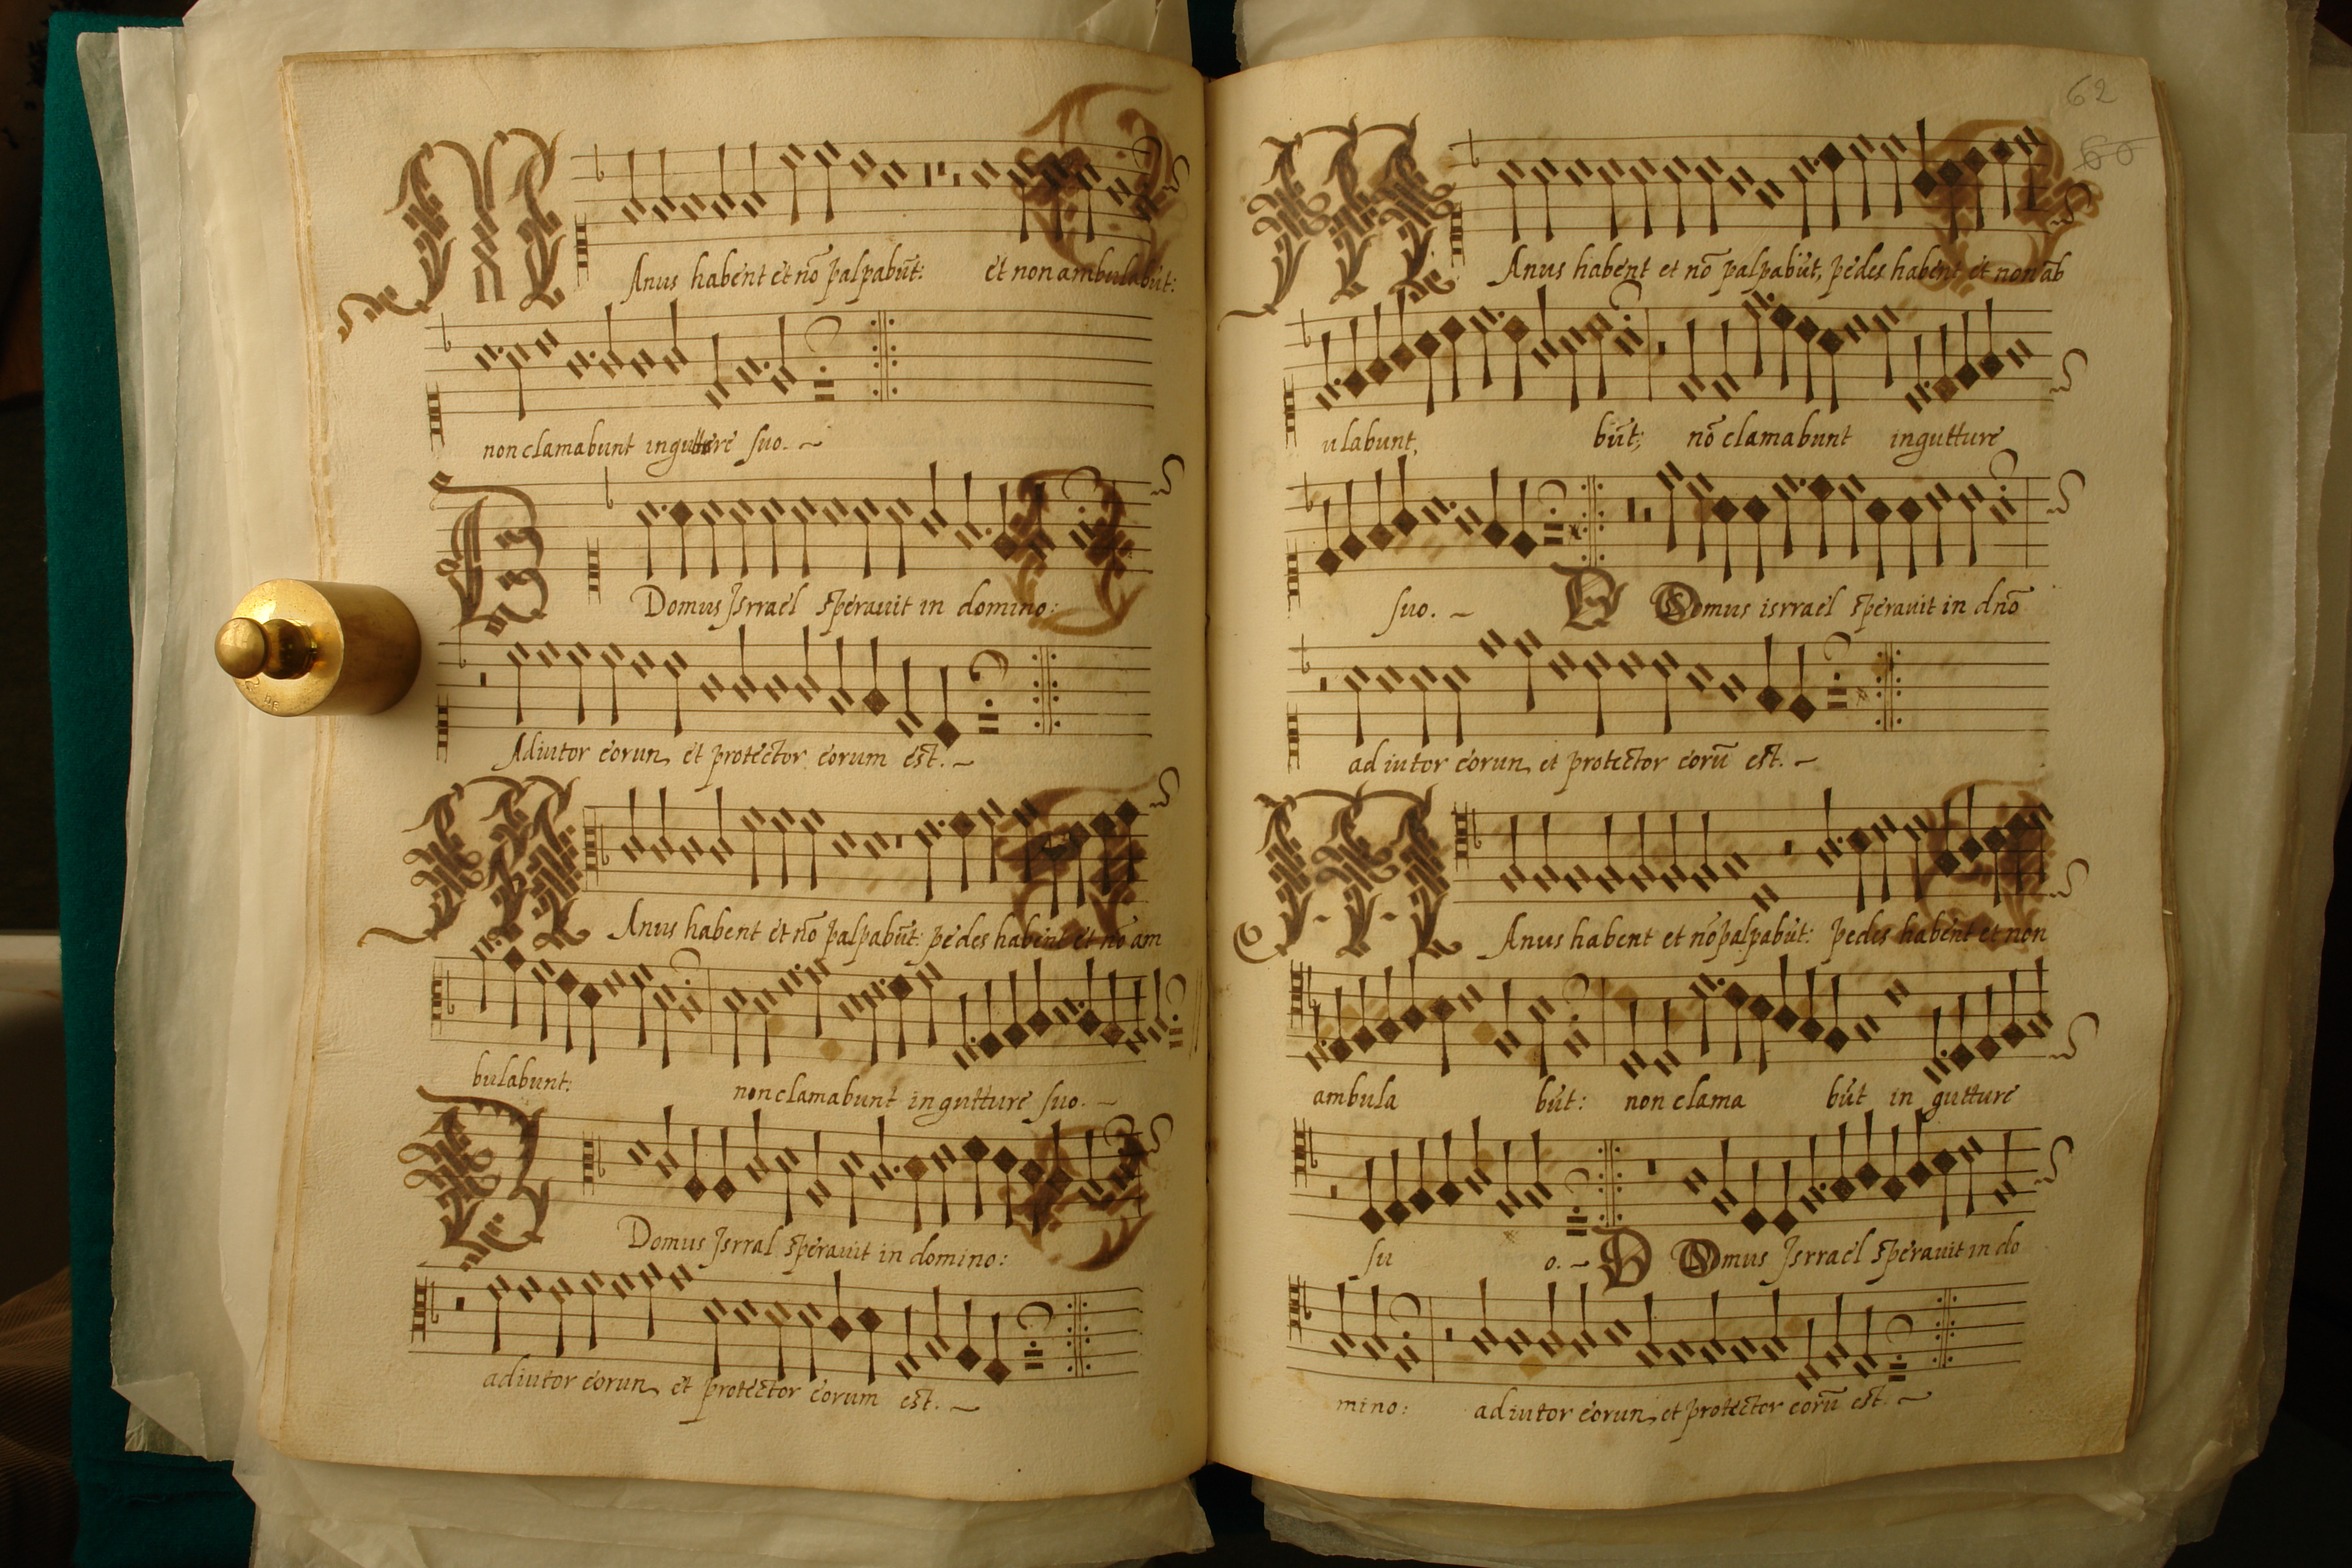 MAnus habent et nō palpabūt: et non ambulabūt:
non clamabunt in gutture suo. ~
Domus Jsrrael sperauit in domino:
Adiutor eorun, et protector eorum est. ~
MAnus habent et nō palpabūt: pedes habent et nō am
bulabunt: non clamabunt in gutture suo. ~
Domus Jsrral sperauit in domino:
adiutor eorun, et protector eorum est. ~
62
60
MAnus habent et nō palpabūt, pedes habent et non ab
ulabunt, būt; nō clamabunt in gutture
suo. ~ D Domus isrrael sperauit in dnō
adiutor eorun, et protector corū est. ~
MAnus habent et nō palpabūt: pedes habent et non
ambula būt: non clama būt in gutture
su o. ~ D Domus Jsrrael sperauit in do
mino: adiutor eorun, et protector eorū est. ~